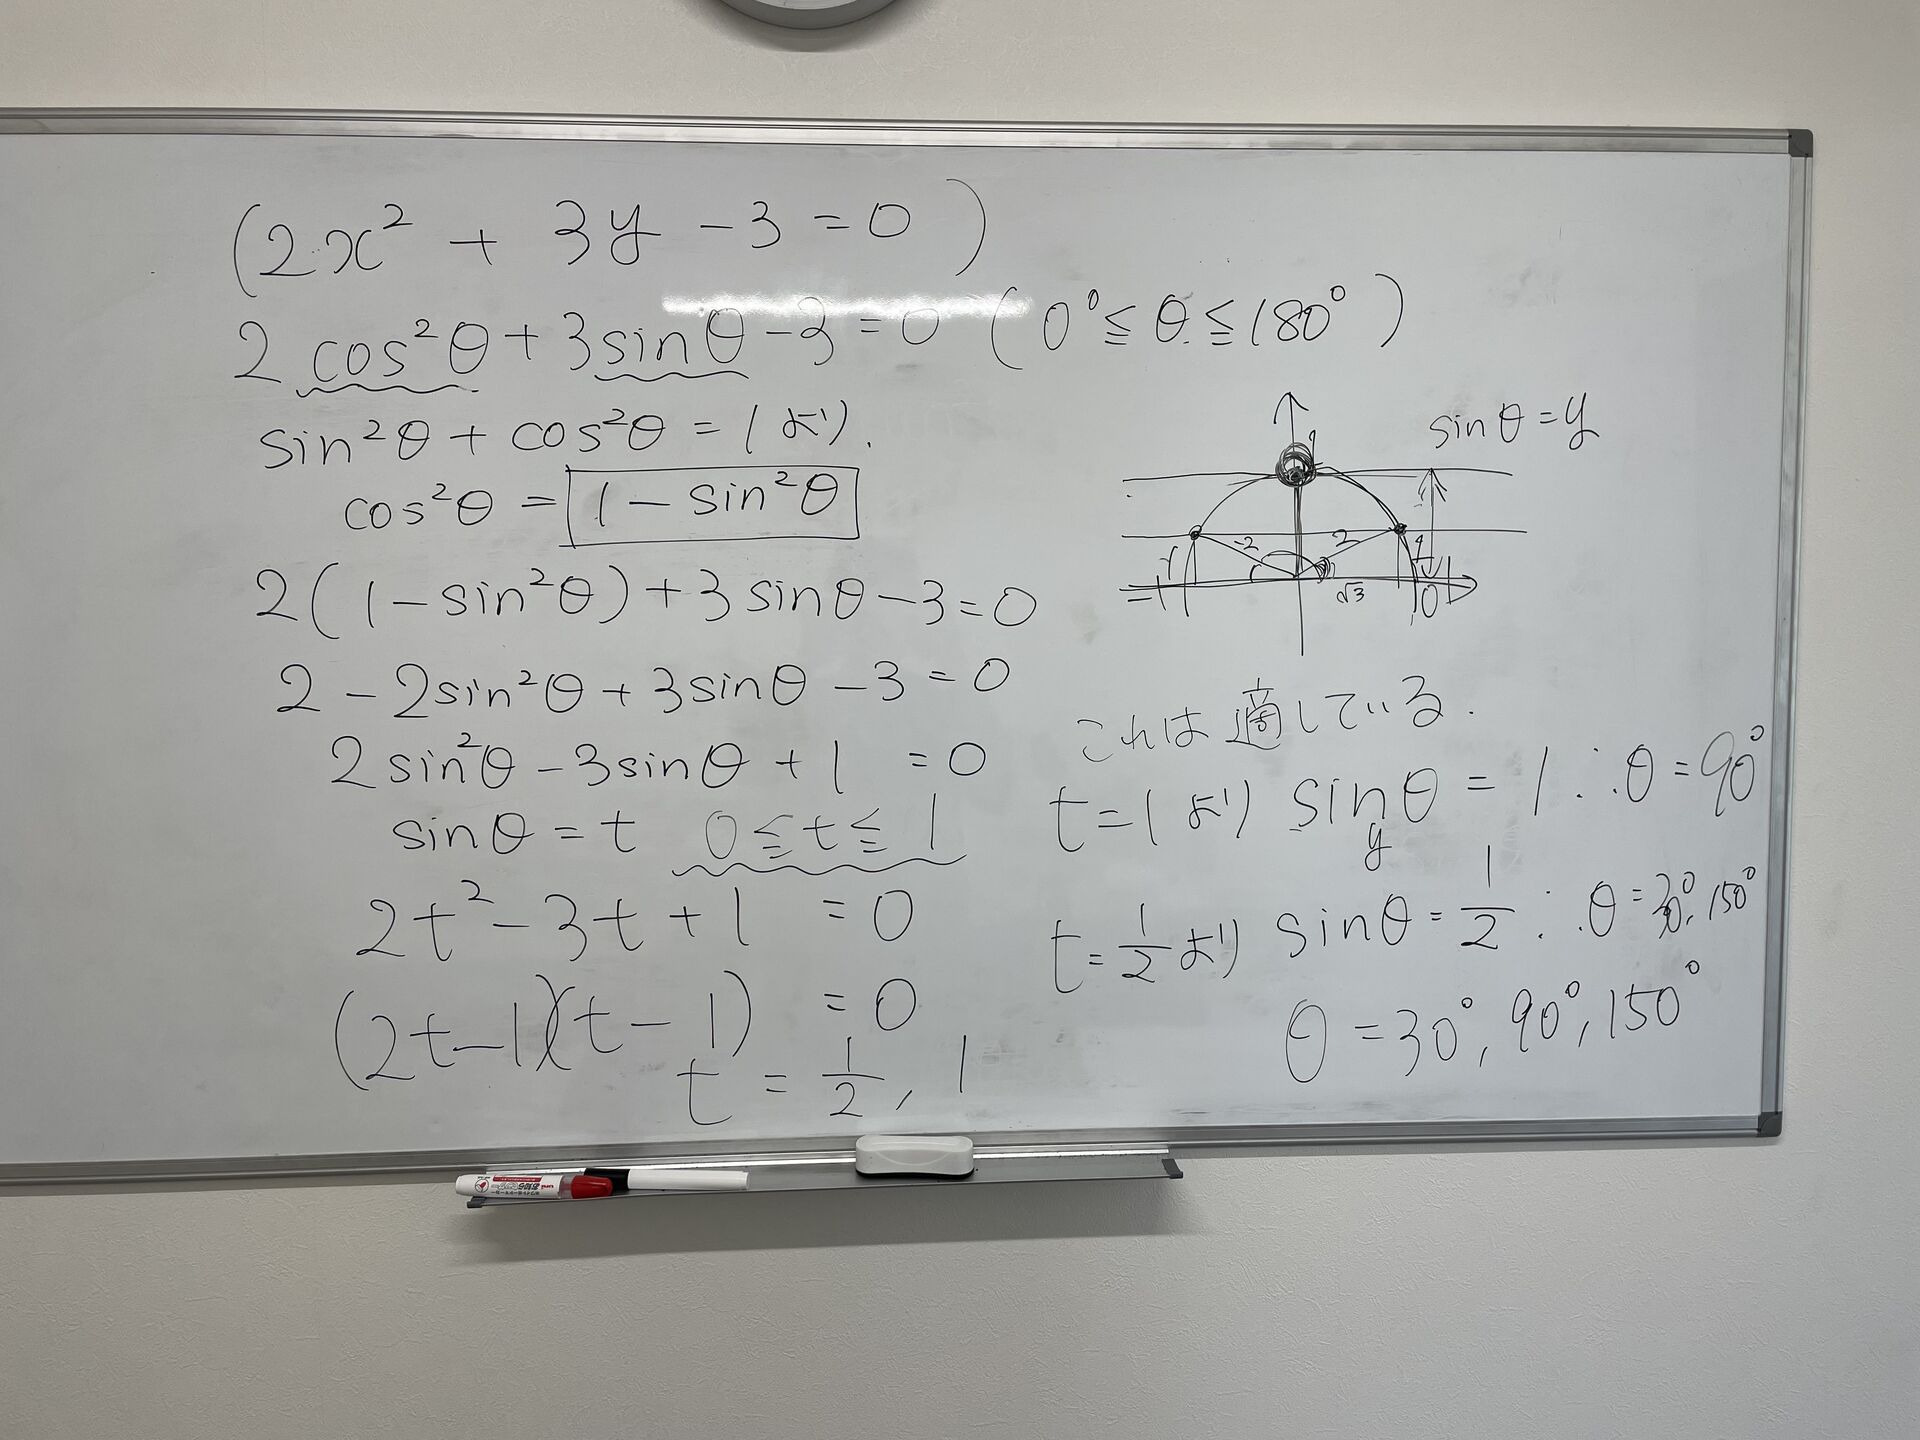 (2x² + 3y - 3 = 0)
2cos²θ + 3sinθ - 3 = 0 (0° ≦ θ ≦ 180°)
sin²θ + cos²θ = 1 より.
cos²θ = 1 - sin²θ
2(1 - sin²θ) + 3sinθ - 3 = 0
2 - 2sin²θ + 3sinθ - 3 = 0
2sin²θ - 3sinθ + 1 = 0
sinθ = t 0 ≦ t ≦ 1
2t² - 3t + 1 = 0
(2t - 1)(t - 1) = 0
t = 1/2, 1
sinθ = y
1
-2 2 1
-1 √3 0 1
これは適している.
t = 1 より sinθ = 1 ∴ θ = 90°
y
t = 1/2 より sinθ = 1/2 ∴ θ = 30°, 150°
θ = 30°, 90°, 150°